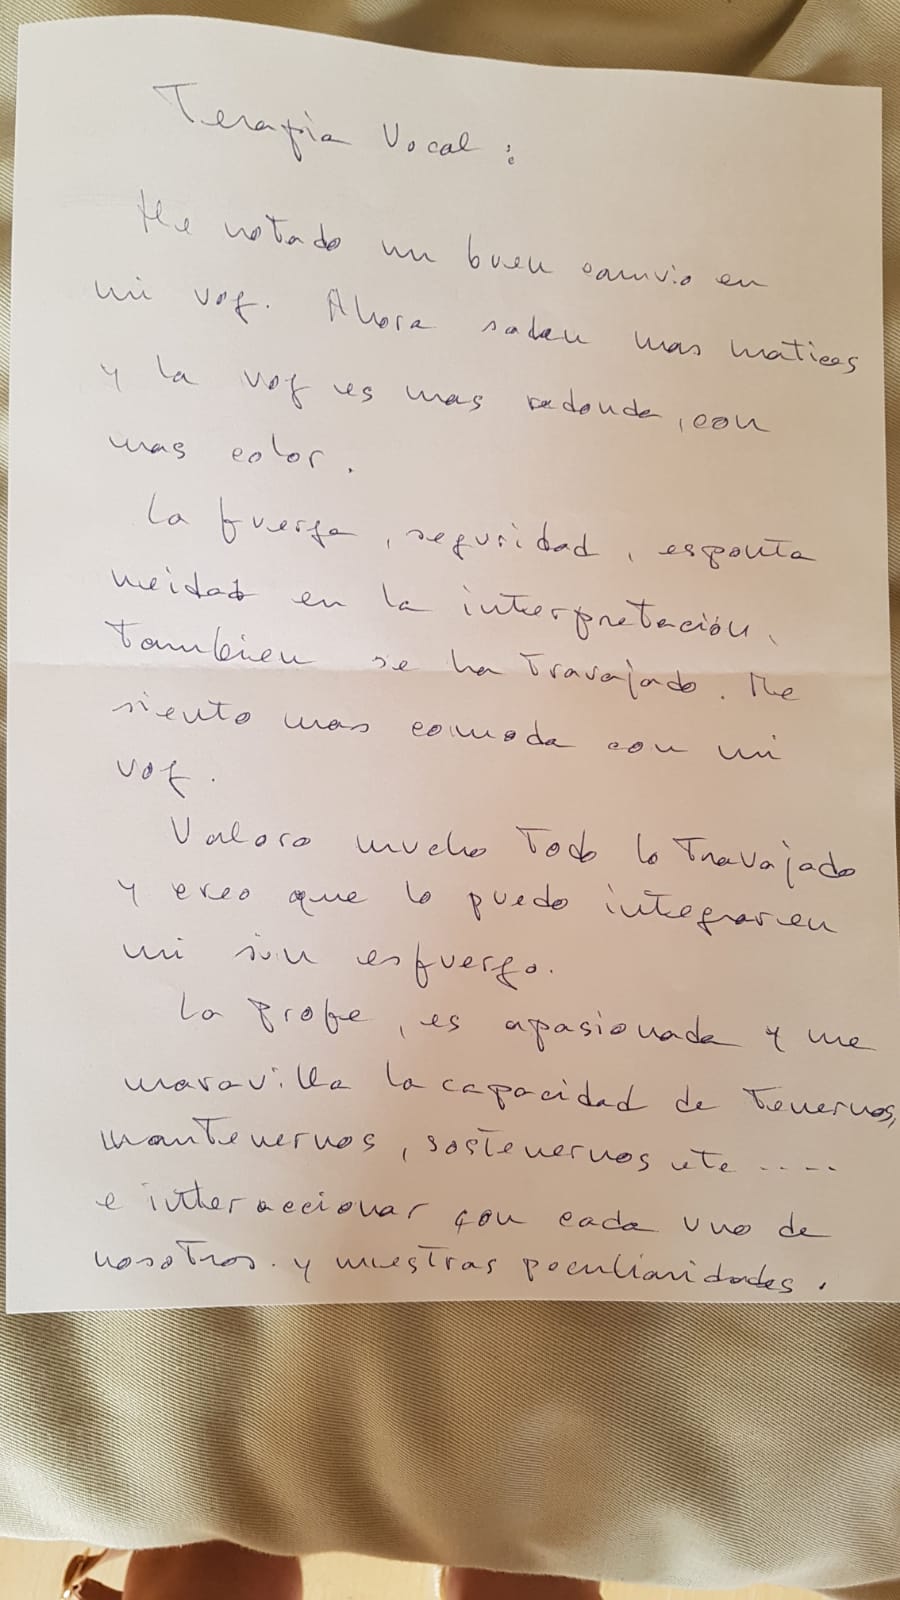 Terapia Vocal :
He notado un buen camvio en
mi voz. Ahora salen mas matices
y la voz es mas redonda, con
mas color.
La fuerza, seguridad, esponta
neidad en la interpretación,
tambien se ha travajado. Me
siento mas comoda con mi
voz.
Valoro mucho todo lo travajado
y creo que lo puedo integrar en
mi sin esfuerzo.
La profe, es apasionada y me
maravilla la capacidad de tenernos,
mantenernos, sostenernos ete .....
e interaccionar con cada uno de
nosotros. y nuestras peculiaridades.